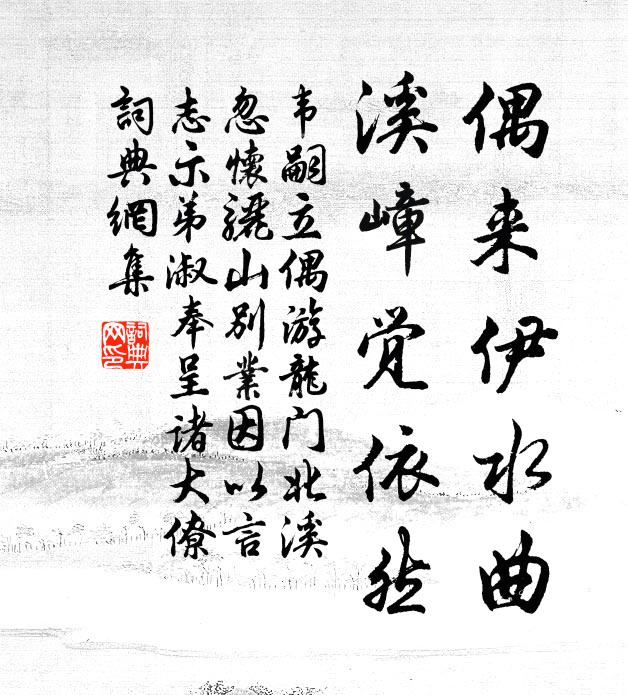 偶来伊水曲
溪嶂觉依然
韦嗣立偶游龙门北溪
忽怀骊山别业因以言
志示弟淑奉呈诸大僚
词典網集
詞典
网印